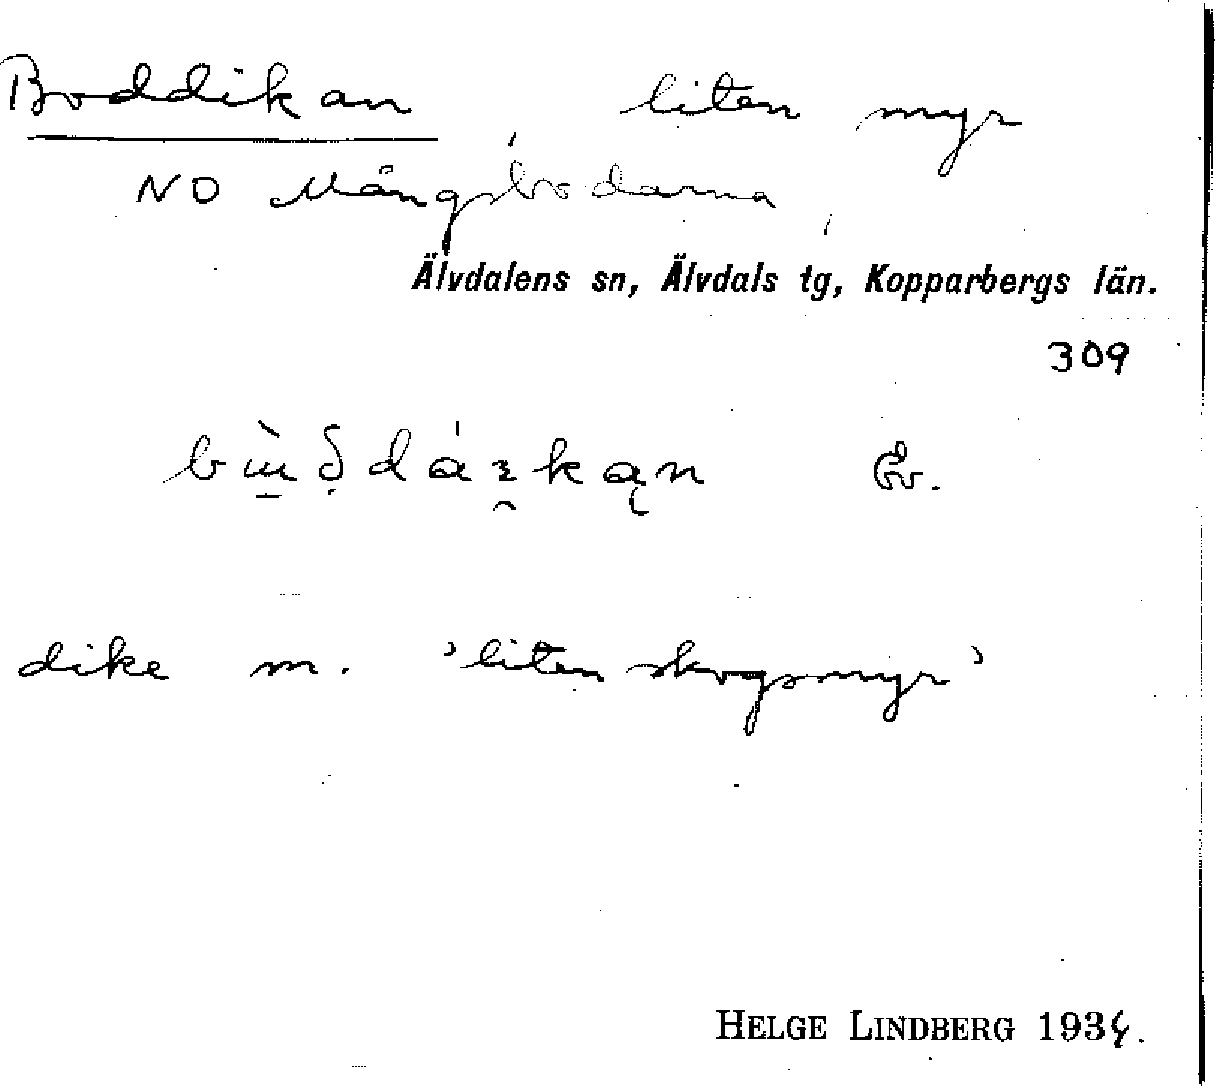 Boddikan, liten myr
NO Mångsbodarna,
Älvdalens sn, Älvdals tg, Kopparbergs län.
309
Ev.
dike m. 'liten skogsmyr'
HELGE LINDBERG 1934.